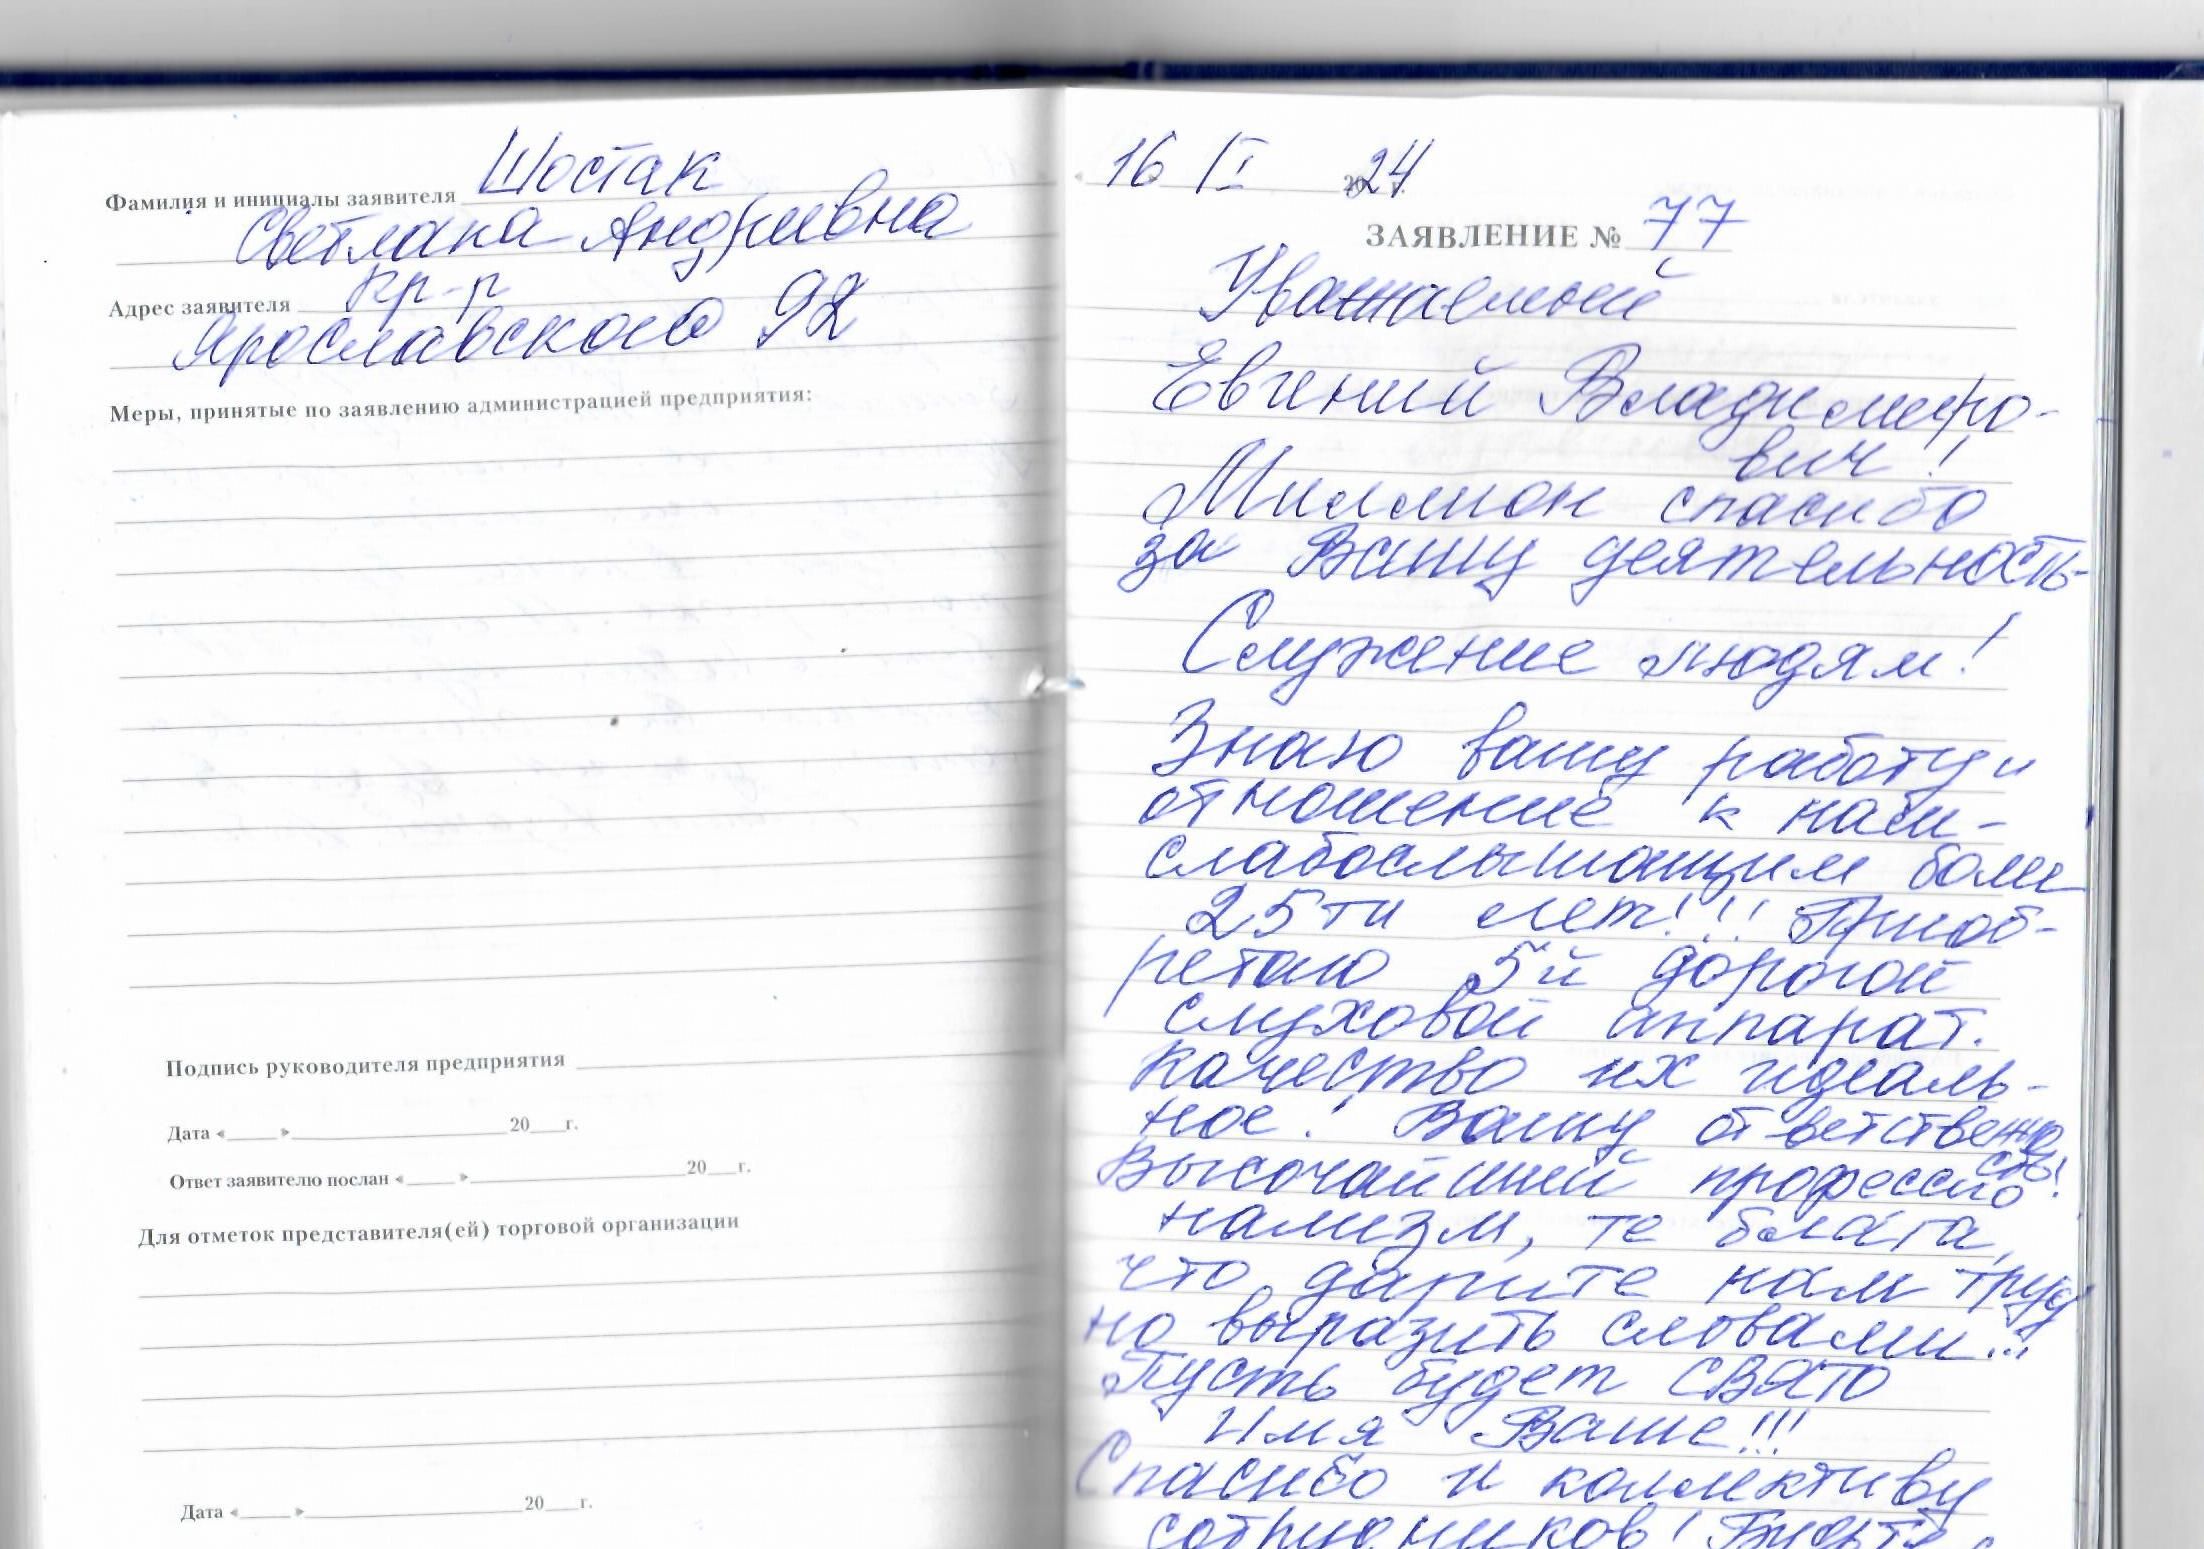 Фамилия и инициалы заявителя Шостак
Светлана Андреивна
Адрес заявителя кр-р
Ярославского 92
Меры, принятые по заявлению администрацией предприятия:
Подпись руководителя предприятия
Дата « » 20 г.
Ответ заявителю послан « » 20 г.
Для отметок представителя(ей) торговой организации
Дата « » 20 г.
16 I 2024 г.
ЗАЯВЛЕНИЕ № 77
Уважаемый
Евгений Владимиро-
вич!
Миллион спасибо
за Вашу деятельность-
Служение людям!
Знаю вашу работу и
отношение к нам-
слабослышащим более
25ти лет!!! Приоб-
ретаю 5й дорогой
слуховой аппарат.
Качество их идеаль-
ное! Вашу ответственно
сть!
Высочайший профессио
нализм, те блага,
что дарите нам труд
но выразить словами...
Пусть будет СВЯТО
Имя Ваше!!!
Спасибо и коллективу
сотрудников! Будьте